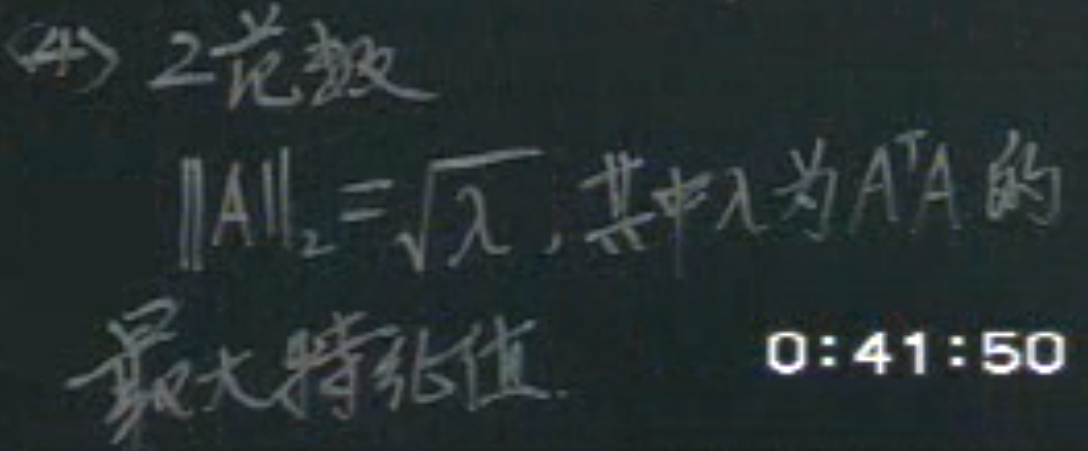 <4> 2范数
‖A‖₂ = √λ, 其中λ为AᵀA的
最大特征值.
0:41:50